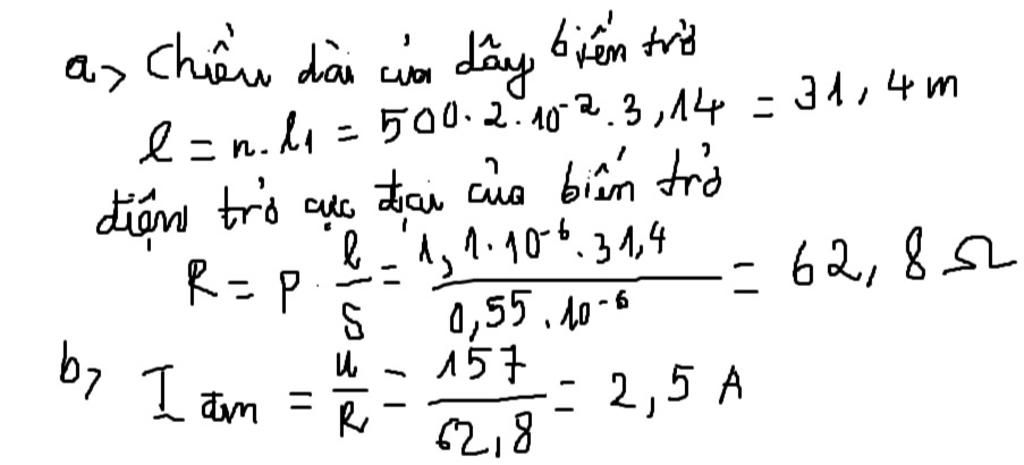 a> Chiều dài của dây biến trở
l = n. l₁ = 500. 2. 10⁻². 3,14 = 31,4m
điện trở cực đại của biến trở
R = P. l/S = 1,1. 10⁻⁶. 31,4 / 0,55. 10⁻⁶ = 62,8 Ω
b> I đm = U/R = 157/62,8 = 2,5 A